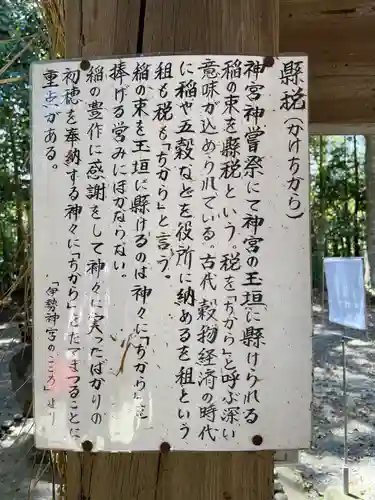 縣税（かけちから）
神宮神嘗祭にて神宮の玉垣に縣けられる
稲の束を縣税という。税を「ちから」と呼ぶ深い
意味が込められている。古代 穀物経済の時代
に稲や五穀などを役所に納めるを租という
租も税も「ちから」と言う。
稲の束を玉垣に縣けるのは神々に「ちから」を
捧げる営みにほかならない。
稲の豊作に感謝をして神々に実ったばかりの
初穂を奉納する神々に「ちから」をたてまつることに
重点がある。
「伊勢神宮のこころ」より